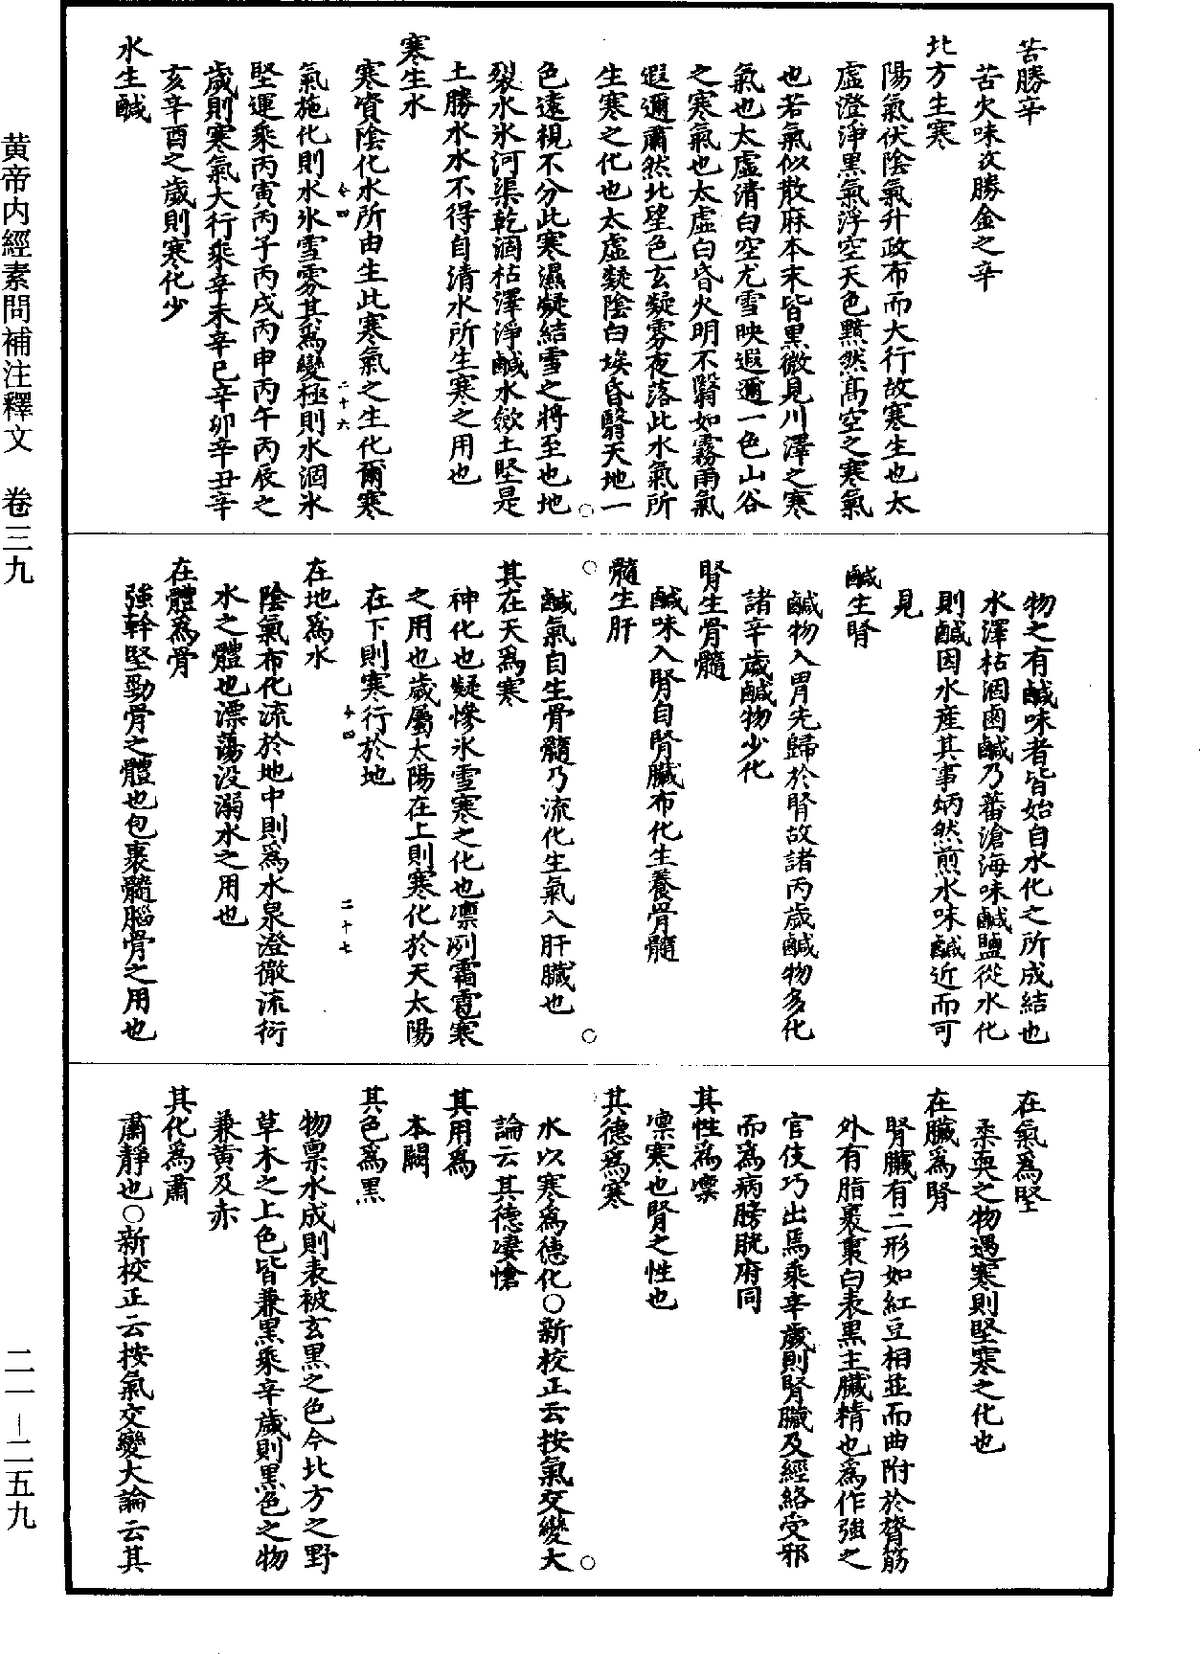 苦勝辛
苦火味故勝金之辛
北方生寒
陽氣伏陰氣升政布而大行故寒生也太
虛澄淨黑氣浮空天色黯然高空之寒氣
也若氣似散麻本末皆黑微見川澤之寒
氣也太虛清白空尤雪映遐邇一色山谷
之寒氣也太虛白昏火明不翳如霧雨氣
遐邇肅然北望色玄凝雰夜落此水氣所
生寒之化也太虛凝陰白埃昏翳天地一
色遠視不分此寒濕凝結雪之將至也地
裂水氷河渠乾涸枯澤淨鹹水歛土堅是
土勝水水不得自清水所生寒之用也
寒生水
寒資陰化水所由生此寒氣之生化爾寒
氣施化則水氷雪雰其爲變極則水涸氷
堅運乘丙寅丙子丙戌丙申丙午丙辰之
歲則寒氣大行乘辛未辛巳辛卯辛丑辛
亥辛酉之歲則寒化少
水生鹹
物之有鹹味者皆始自水化之所成結也
水澤枯涸鹵鹹乃蕃滄海味鹹鹽從水化
則鹹因水産其事炳然煎水味鹹近而可
見
鹹生腎
鹹物入胃先歸於腎故諸丙歲鹹物多化
諸辛歲鹹物少化
腎生骨髓
鹹味入腎自腎臟布化生養骨髓
髓生肝
鹹氣自生骨髓乃流化生氣入肝臟也
其在天爲寒
神化也凝慘氷雪寒之化也凛冽霜雹寒
之用也歲屬太陽在上則寒化於天太陽
在下則寒行於地
在地爲水
陰氣布化流於地中則爲水泉澄徹流衍
水之體也漂蕩没溺水之用也
在體爲骨
強幹堅勁骨之體也包裹髓腦骨之用也
在氣爲堅
柔耎之物遇寒則堅寒之化也
在臟爲腎
腎臟有二形如紅豆相並而曲附於膂筋
外有脂裹裏白表黑主臟精也爲作強之
官伎巧出焉乘辛歲則腎臟及經絡受邪
而爲病膀胱府同
其性爲凛
凛寒也腎之性也
其德爲寒
水以寒爲德化○新校正云按氣交變大
論云其德凄愴
其用爲
本闕
其色爲黑
物禀水成則表被玄黑之色今北方之野
草木之上色皆兼黑乘辛歲則黑色之物
兼黄及赤
其化爲肅
肅靜也○新校正云按氣交變大論云其
黄帝内經素問補注釋文 卷三九
二一—二五九
二十六
二十七